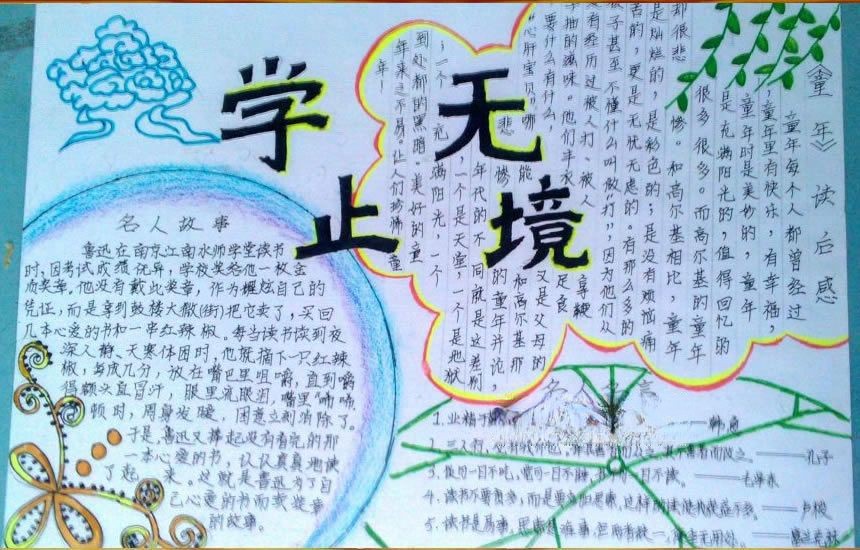 学无止境
名人故事
鲁迅在南京江南水师学堂读书
时,因考试成绩优异,学校奖给他一枚金
质奖章。他没有戴此奖章,作为炫耀自己的
凭证,而是拿到鼓楼大撒(街)把它卖了,买回
几本心爱的书和一串红辣椒。每当读书读到夜
深人静、天寒体困时,他就摘下一只红辣
椒,每成几分,放在嘴巴里咀嚼,直到嚼
得额头直冒汗,眼里流眼泪,嘴里"唏唏
顿时,周身发暖,困意立刻消除了。
于是鲁迅又捧起没有看完的那
一本心爱的书,认认真真地读
了起来。这就是鲁迅为了自
己心爱的书而卖奖章
的故事。
《童年》读后感
童年每个人都曾经过
童年里有快乐,有幸福,
童年时是美妙的,童年
是充满阳光的,值得回忆的
很多很多。而高尔基的童年
却很悲惨。和高尔基相比,童年
是灿烂的,是彩色的;是没有烦恼痛
苦的,更是无忧无虑的。有那么多的
孩子甚至不懂什么叫做"打",因为他们从
没有经历过被人打、被人
子抽的滋味。他们丰衣足食
要什么有什么,又是父母的
"心肝宝贝"哪能和高尔基那
悲惨的童年并论,
年代的不同就是这差别
一个是天堂,一个是地狱
;一个充满阳光,一个
到处都的黑暗。美好的童
年来之不易。让人们珍惜童
年!
名人名言
1、业精于 ——韩愈
2、三人行,必有我师也。 其不善者而改之。——孔子
3、饭可一日不吃,觉可一日不睡, 一日不读。——毛泽东
4、读书不要贪多,而是要多加思索,这样的读 益不多。——卢梭
5、读书是易事,思索是难事,但两者缺一,便全无用处。——富兰克林